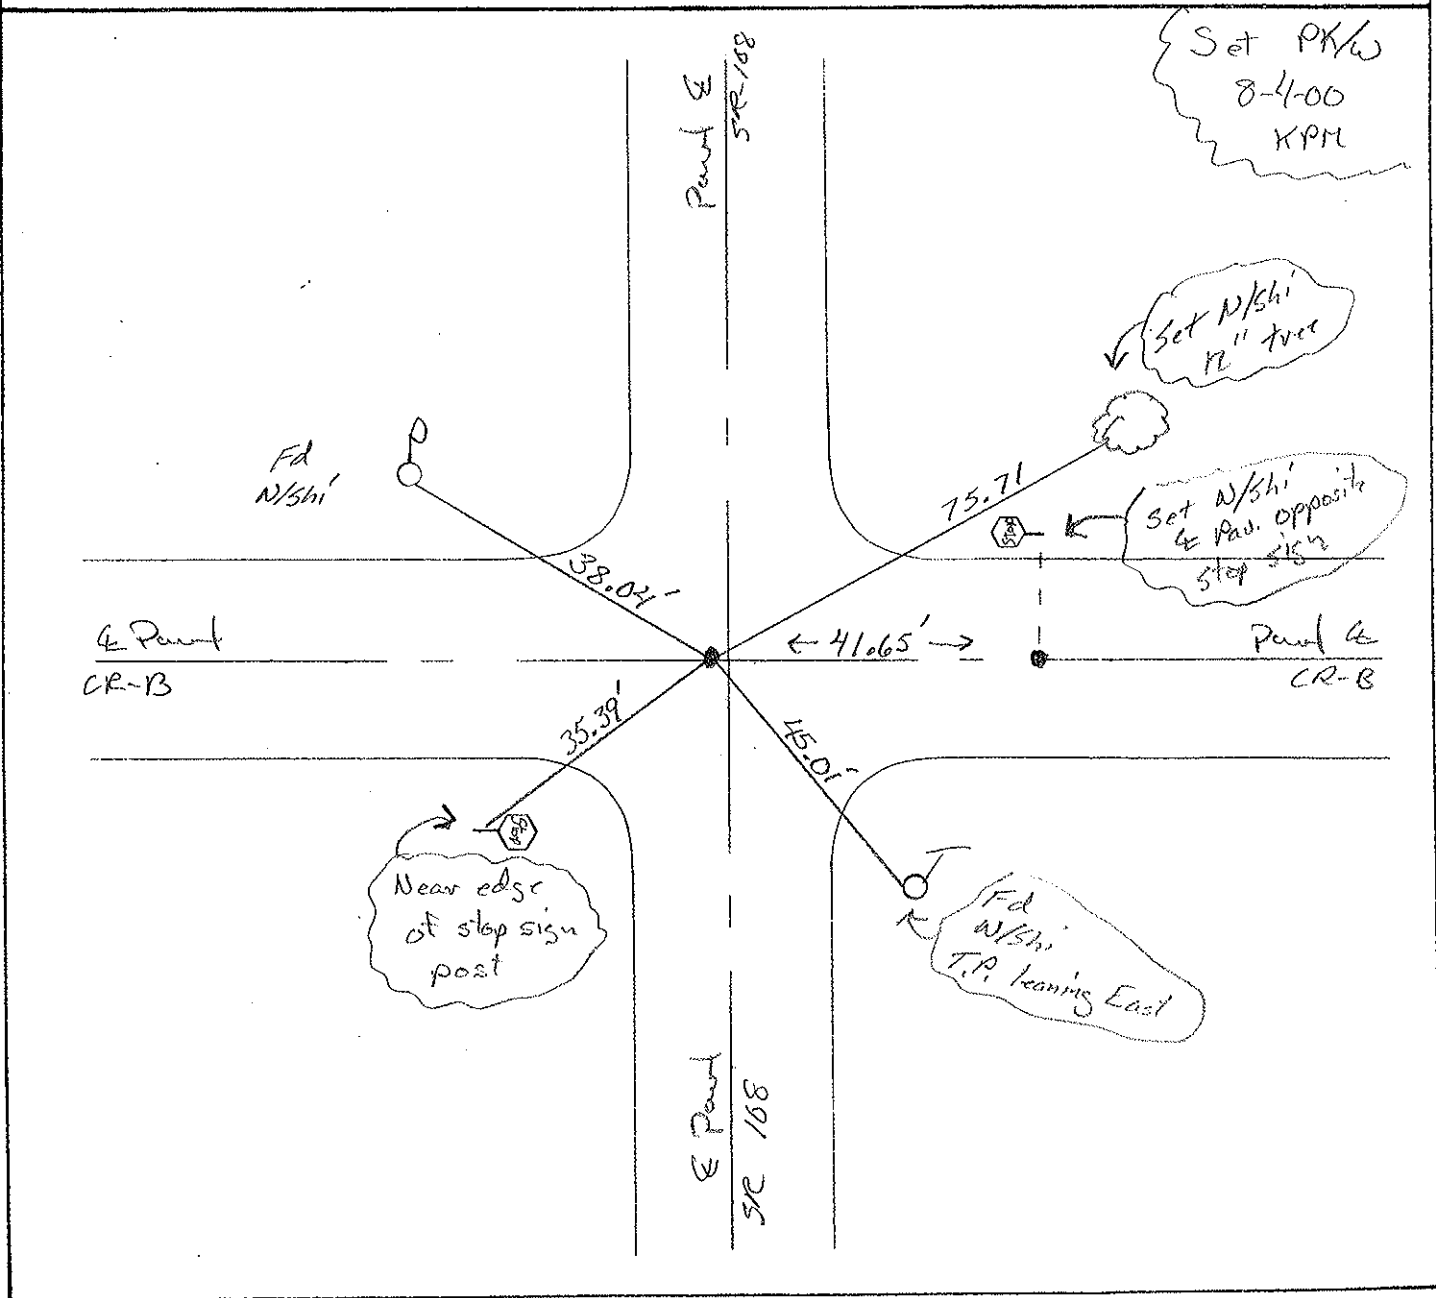 Set PK/W
8-4-00
KPM
Pavmt ℄
SR-168
Set N/Shi
12" tree
Fd
N/Shi
75.71
Stop
Set N/Shi
℄ Pav. opposite
stop sign
38.04'
← 41.65' →
℄ Pavmt
CR-B
Pavmt ℄
CR-B
35.39'
45.01'
Stop
Near edge
of stop sign
post
Fd
N/Shi
T.P. leaning East
℄ Pavmt
SR 168